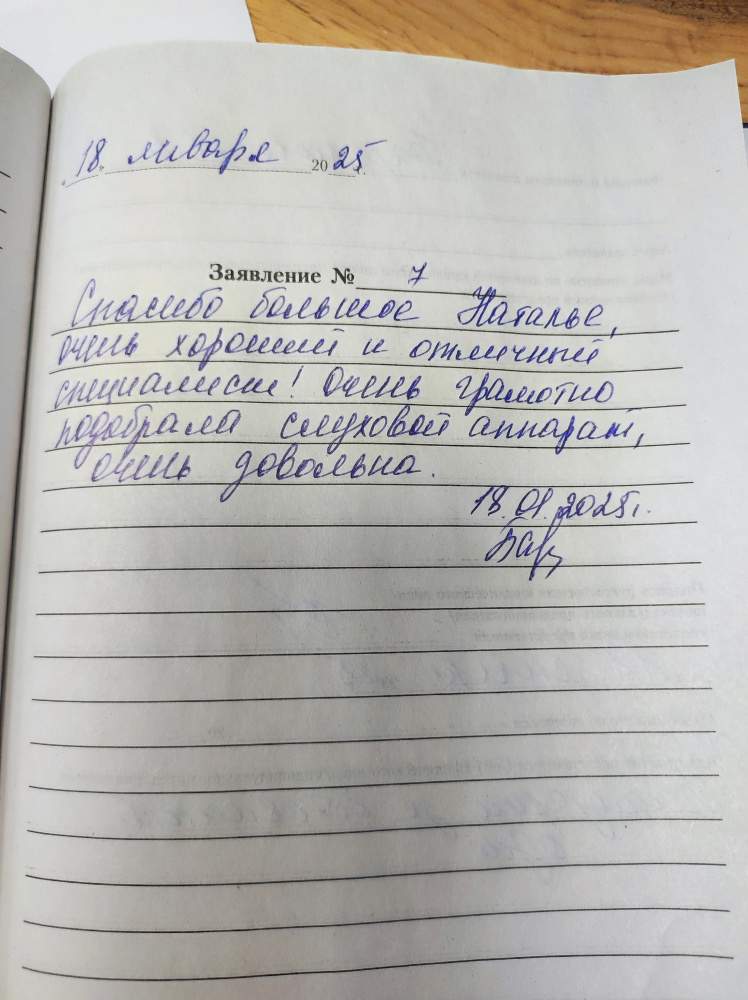 "18" января 2025 г.
Заявление № 7
Спасибо большое Наталье,
очень хороший и отличный
специалист! Очень грамотно
подобрала слуховой аппарат,
очень довольна.
18.01.2025г.